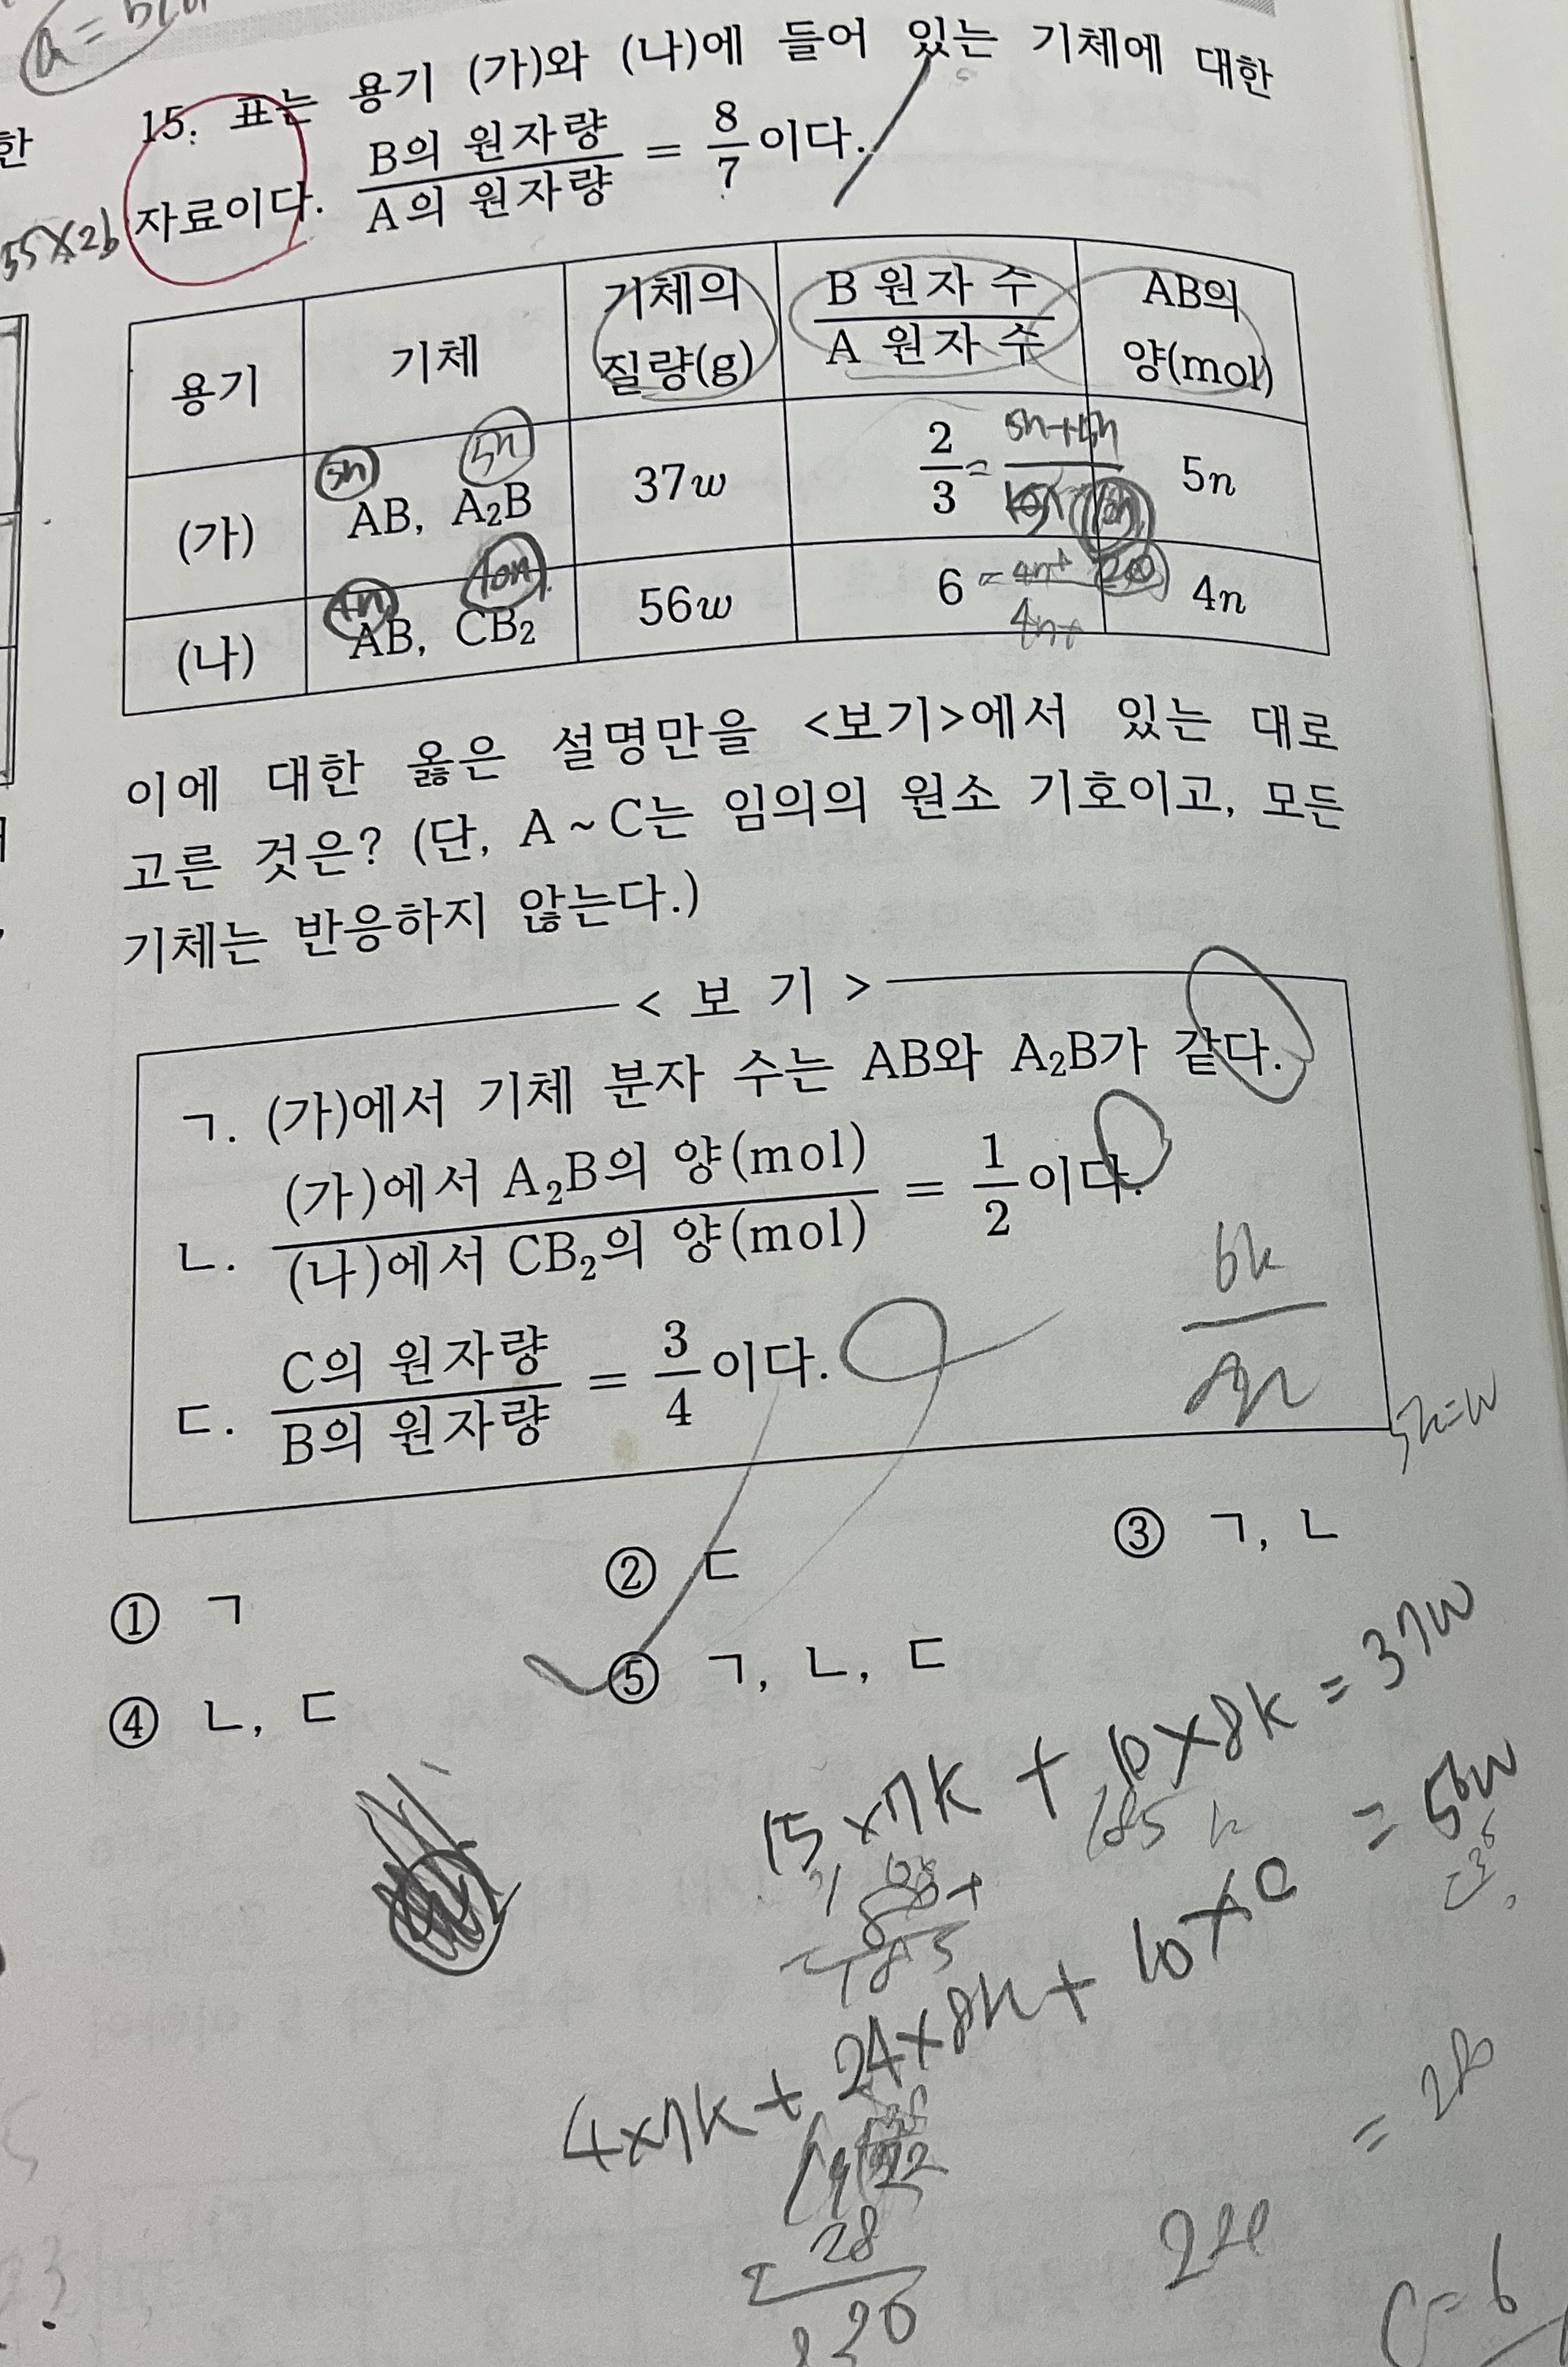 a =
15. 표는 용기 (가)와 (나)에 들어 있는 기체에 대한
자료이다. B의 원자량 / A의 원자량 = 8/7 이다.
한
35×2b
용기 기체 기체의 질량(g) B 원자 수 / A 원자 수 AB의 양(mol)
5n 5n
(가) AB, A₂B 37w 2/3 = 5n+5n 5n
4n 10n
(나) AB, CB₂ 56w 6 = 4n+ 4n
이에 대한 옳은 설명만을 <보기>에서 있는 대로
고른 것은? (단, A ~ C는 임의의 원소 기호이고, 모든
기체는 반응하지 않는다.)
< 보 기 >
ㄱ. (가)에서 기체 분자 수는 AB와 A₂B가 같다.
ㄴ. (가)에서 A₂B의 양(mol) / (나)에서 CB₂의 양(mol) = 1/2 이다.
ㄷ. C의 원자량 / B의 원자량 = 3/4 이다.
6k
5k=w
① ㄱ
② ㄷ
③ ㄱ, ㄴ
④ ㄴ, ㄷ
⑤ ㄱ, ㄴ, ㄷ
15×7k + 10×8k = 37w
185
4×7k + 24×8k + 10×C = 56w
192
28
220
C=6